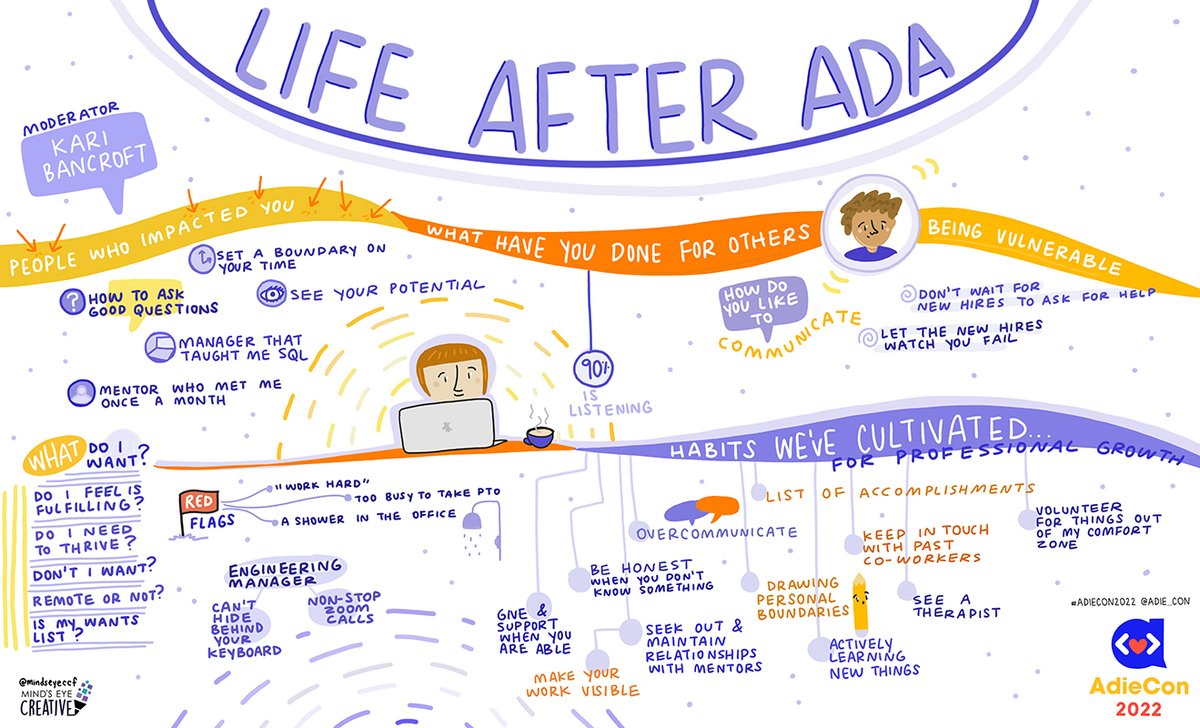 LIFE AFTER ADA
MODERATOR
KARI
BANCROFT
PEOPLE WHO IMPACTED YOU
SET A BOUNDARY ON
YOUR TIME
?
HOW TO ASK
GOOD QUESTIONS
SEE YOUR POTENTIAL
MANAGER THAT
TAUGHT ME SQL
MENTOR WHO MET ME
ONCE A MONTH
WHAT HAVE YOU DONE FOR OTHERS
90%
IS
LISTENING
HOW DO
YOU LIKE
TO
COMMUNICATE
BEING VULNERABLE
DON'T WAIT FOR
NEW HIRES TO ASK FOR HELP
LET THE NEW HIRES
WATCH YOU FAIL
WHAT DO I
WANT?
DO I FEEL IS
FULFILLING?
DO I NEED
TO THRIVE?
DON'T I WANT?
REMOTE OR NOT?
IS MY WANTS
LIST?
RED
FLAGS
"WORK HARD"
TOO BUSY TO TAKE PTO
A SHOWER IN THE OFFICE
ENGINEERING
MANAGER
CAN'T
HIDE
BEHIND
YOUR
KEYBOARD
NON-STOP
ZOOM
CALLS
HABITS WE'VE CULTIVATED...
FOR PROFESSIONAL GROWTH
GIVE &
SUPPORT
WHEN YOU
ARE ABLE
BE HONEST
WHEN YOU DON'T
KNOW SOMETHING
MAKE YOUR
WORK VISIBLE
SEEK OUT &
MAINTAIN
RELATIONSHIPS
WITH MENTORS
OVERCOMMUNICATE
LIST OF ACCOMPLISHMENTS
DRAWING
PERSONAL
BOUNDARIES
ACTIVELY
LEARNING
NEW THINGS
KEEP IN TOUCH
WITH PAST
CO-WORKERS
SEE A
THERAPIST
VOLUNTEER
FOR THINGS OUT
OF MY COMFORT
ZONE
#ADIECON2022 @ADIE_CON
AdieCon
2022
@mindseyeccf
MIND'S EYE
CREATIVE